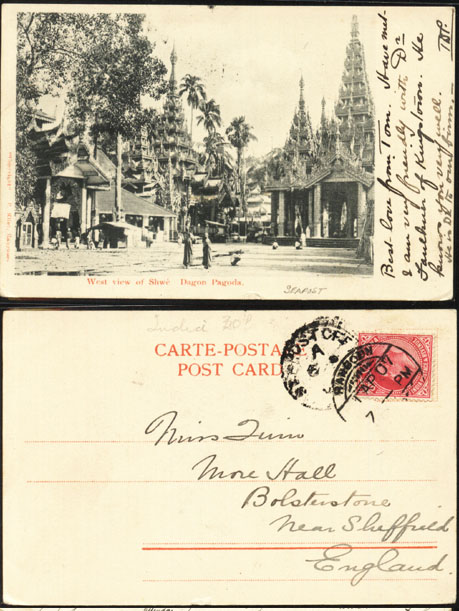 Best love from Tom. Have met
I am very friendly with Dr
Faulkner of Kingstown. He
knows you very well.
West view of Shwé Dagon Pagoda.
SEAPOST
India
CARTE-POSTALE
POST CARD
POST OFF
A
RANGOON
1 AP 07
PM
7
Miss Timm
More Hall
Bolsterstone
Near Sheffield
England.